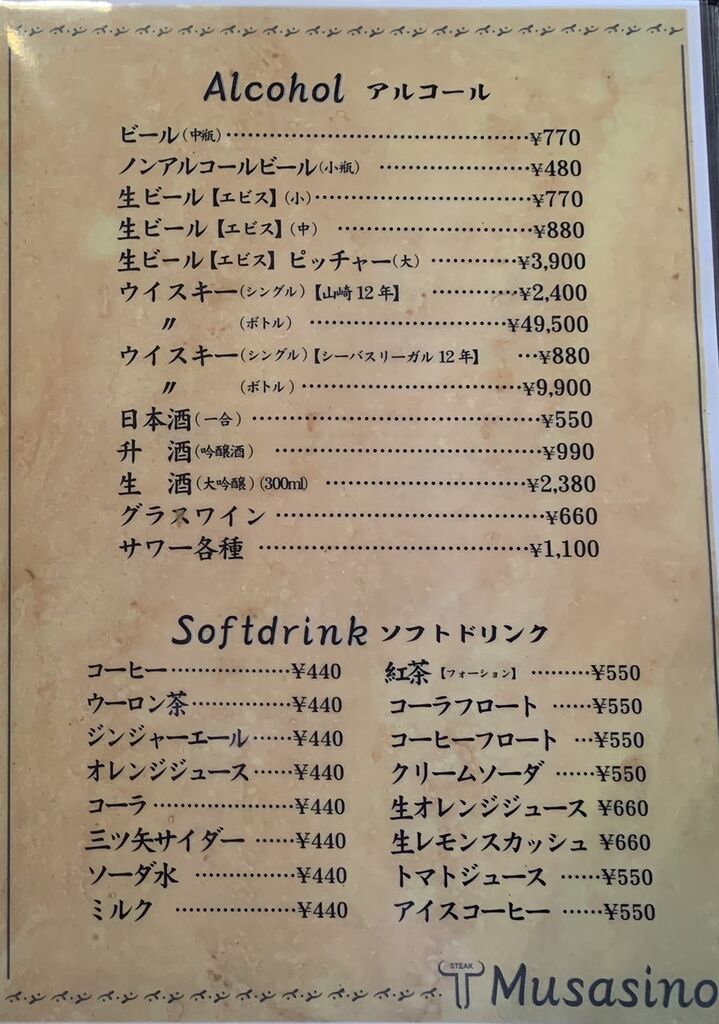 Alcohol アルコール
ビール(中瓶)‥‥‥‥‥‥‥‥‥‥¥770
ノンアルコールビール(小瓶) ‥‥‥‥‥‥¥480
生ビール【エビス】(小)‥‥‥‥‥‥‥‥¥770
生ビール【エビス】(中) ‥‥‥‥‥‥‥¥880
生ビール【エビス】ピッチャー(大) ‥‥‥‥¥3,900
ウイスキー(シングル)【山崎12年】 ‥‥‥‥¥2,400
〃 (ボトル) ‥‥‥‥‥‥‥‥¥49,500
ウイスキー(シングル)【シーバスリーガル12年】 …¥880
〃 (ボトル)‥‥‥‥‥‥‥‥¥9,900
日本酒(一合) ‥‥‥‥‥‥‥‥‥‥¥550
升 酒(吟醸酒) ‥‥‥‥‥‥‥‥‥¥990
生 酒(大吟醸)(300ml) ‥‥‥‥‥‥‥¥2,380
グラスワイン ‥‥‥‥‥‥‥‥‥¥660
サワー各種 ‥‥‥‥‥‥‥‥‥¥1,100
Softdrink ソフトドリンク
コーヒー‥‥‥‥‥‥¥440
ウーロン茶‥‥‥‥‥¥440
ジンジャーエール‥‥‥¥440
オレンジジュース‥‥‥¥440
コーラ‥‥‥‥‥‥‥¥440
三ツ矢サイダー ‥‥‥¥440
ソーダ水 ‥‥‥‥‥¥440
ミルク ‥‥‥‥‥‥¥440
紅茶【フォーション】 ‥‥‥¥550
コーラフロート ‥‥‥¥550
コーヒーフロート …¥550
クリームソーダ ‥‥‥¥550
生オレンジジュース ¥660
生レモンスカッシュ ¥660
トマトジュース ‥‥‥¥550
アイスコーヒー ‥‥‥¥550
STEAK
Musasino